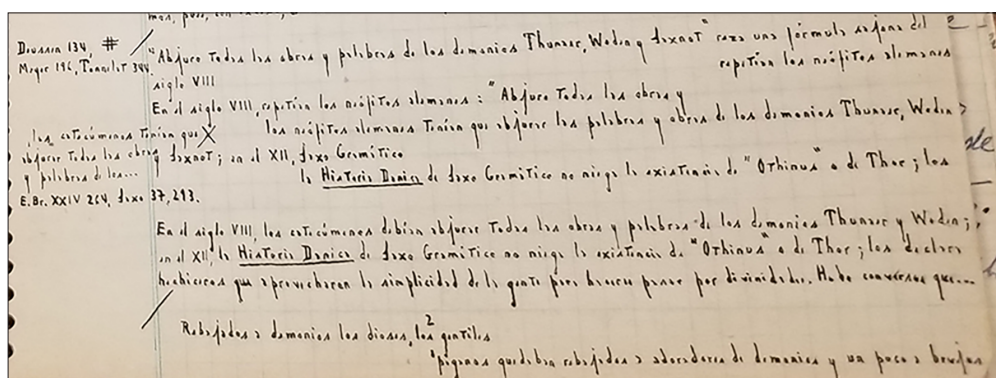 mos, pues, con
Deussen 134, #
Meyer 196, Tonnelat 344.
"Abjuro todas las obras y palabras de los demonios Thunaer, Woden y Saxnot" reza una fórmula sajona del
siglo VIII
repetían los neófitos alemanes
En el siglo VIII, repetían los neófitos alemanes: "Abjuro todas las obras y
los neófitos alemanes tenían que abjurar las palabras y obras de los demonios Thunaer, Woden
los catecúmenos tenían que
abjurar todas las obras
y palabras de los...
y Saxnot; en el XII, Saxo Gramático
la Historia Danica de Saxo Gramático no niega la existencia de "Othinus" o de Thor; los
E.Br. XXIV 264, Saxo 37, 293.
En el siglo VIII, los catecúmenos debían abjurar todas las obras y palabras de los demonios Thunaer y Woden;
en el XII, la Historia Danica de Saxo Gramático no niega la existencia de "Othinus" o de Thor; los declara
hechiceros que aprovecharon la simplicidad de la gente para hacerse pasar por divinidades. Hubo conversos que...
Rebajados a demonios los dioses, los gentiles
2
paganos quedaban rebajados a adoradores de demonios y un poco a brujos